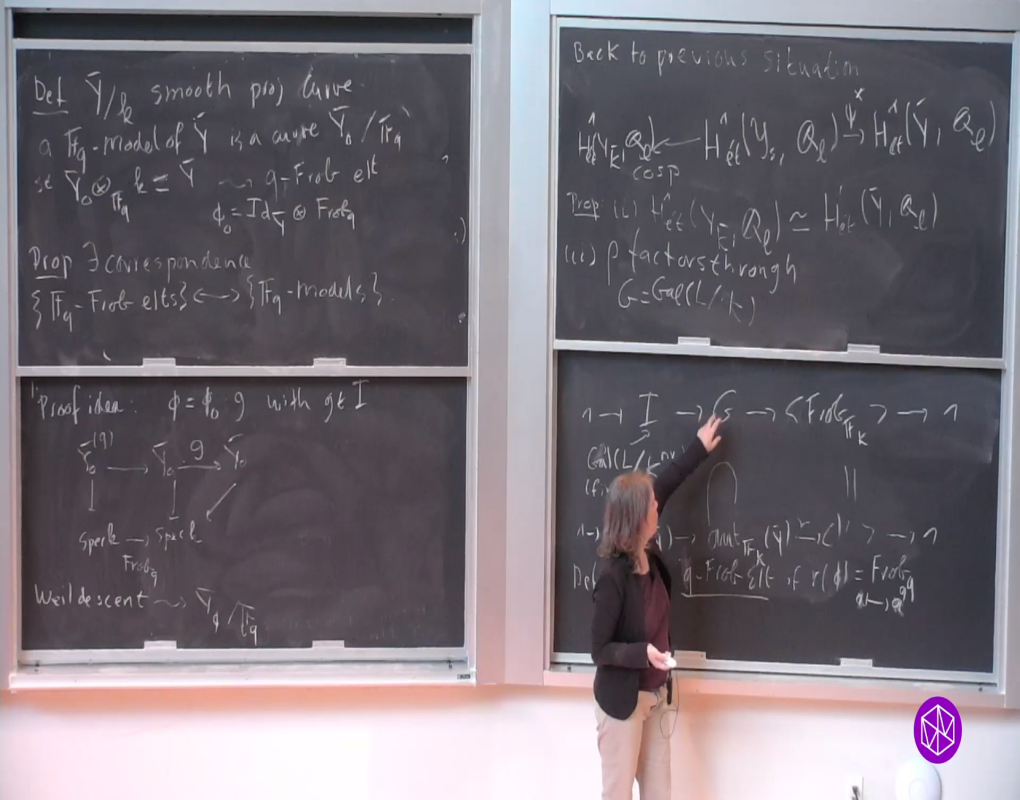 Def Ȳ/k smooth proj curve.
a 𝔽q-model of Ȳ is a curve Ȳ₀/𝔽q
st Ȳ₀ ⊗_𝔽q k ≃ Ȳ ⇝ q-Frob elt
ϕ₀ = Id_Ȳ ⊗ Frob_q
Prop ∃ correspondence
{𝔽q-Frob elts} ↔ {𝔽q-models}.
Proof idea: ϕ = ϕ₀ g with g ∈ I
Ȳ₀^(q) → Ȳ₀ →^g Ȳ₀
spec k → spec k
Frob_q
Weil descent ⇝ Ȳ_ϕ/𝔽q
Back to previous situation
H¹ét(Y_k̄, Qℓ) ← H¹ét(Y_s, Qℓ) →^ψ* H¹ét(Ȳ, Qℓ)
cosp
Prop (i) H¹ét(Y_k̄, Qℓ) ≃ H¹ét(Ȳ, Qℓ)
(ii) ρ factors through
G = Gal(L/k)
1 → I → G → <Frob_𝔽k> → 1
Gal(L/k^nr
Aut_𝔽k(Ȳ) →^r → 1
q-Frob elt if r(ϕ) = Frob_q